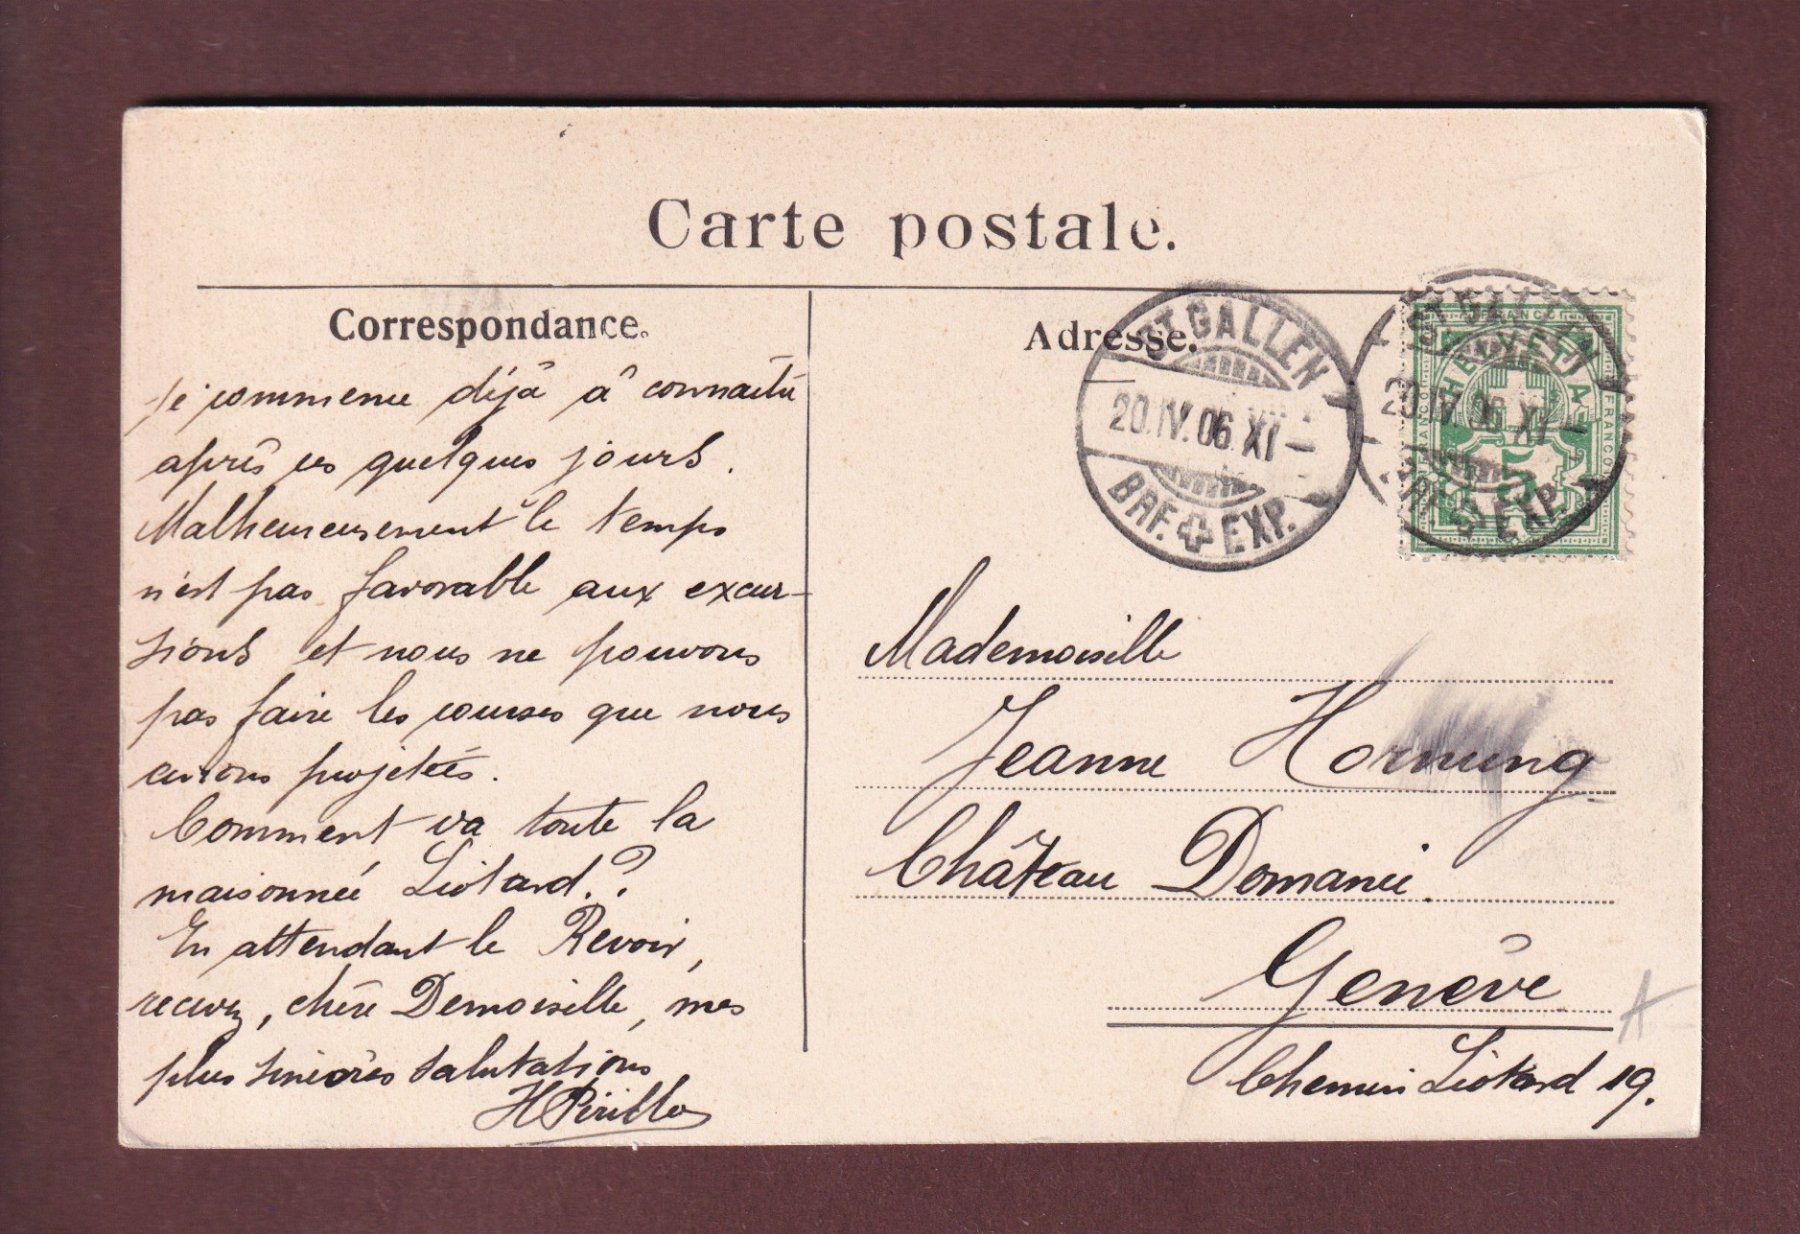 Carte postale.
Correspondance.
je commence déjà à connaître
après ces quelques jours.
Malheureusement le temps
n'est pas favorable aux excur-
sions et nous ne pouvons
pas faire les courses que nous
avions projetées.
Comment va toute la
maisonnée Liotard.?
En attendant le Revoir,
recevez, chère Demoiselle, mes
plus sincères salutations
Adresse.
ST. GALLEN
20.IV.06.XI-
BRF. EXP.
ST. GALLEN
20.IV.06.XI-
BRF. EXP.
FRANCO
HELVETIA
FRANCO
FRANCO
5
Mademoiselle
Jeanne Hornung
Château
Genève
Chemin Liotard 19.
A